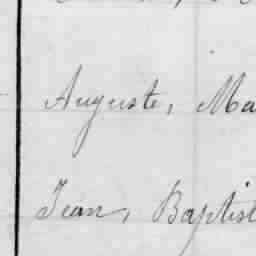 Auguste, Ma
Jean, Baptist